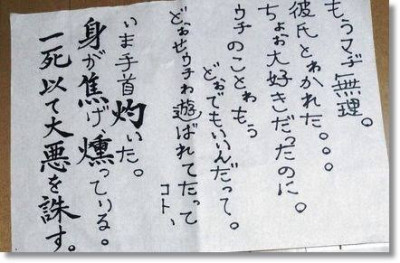 もうマヂ無理。
彼氏とゎかれた。。。
ちょお大好きだったのに。
ウチのことゎもう
どぉでもいいんだって。
どぉせウチゎ遊ばれてたって
コト、
いま手首灼いた。
身が焦げ燻っている。
一死以て大悪を誅す。